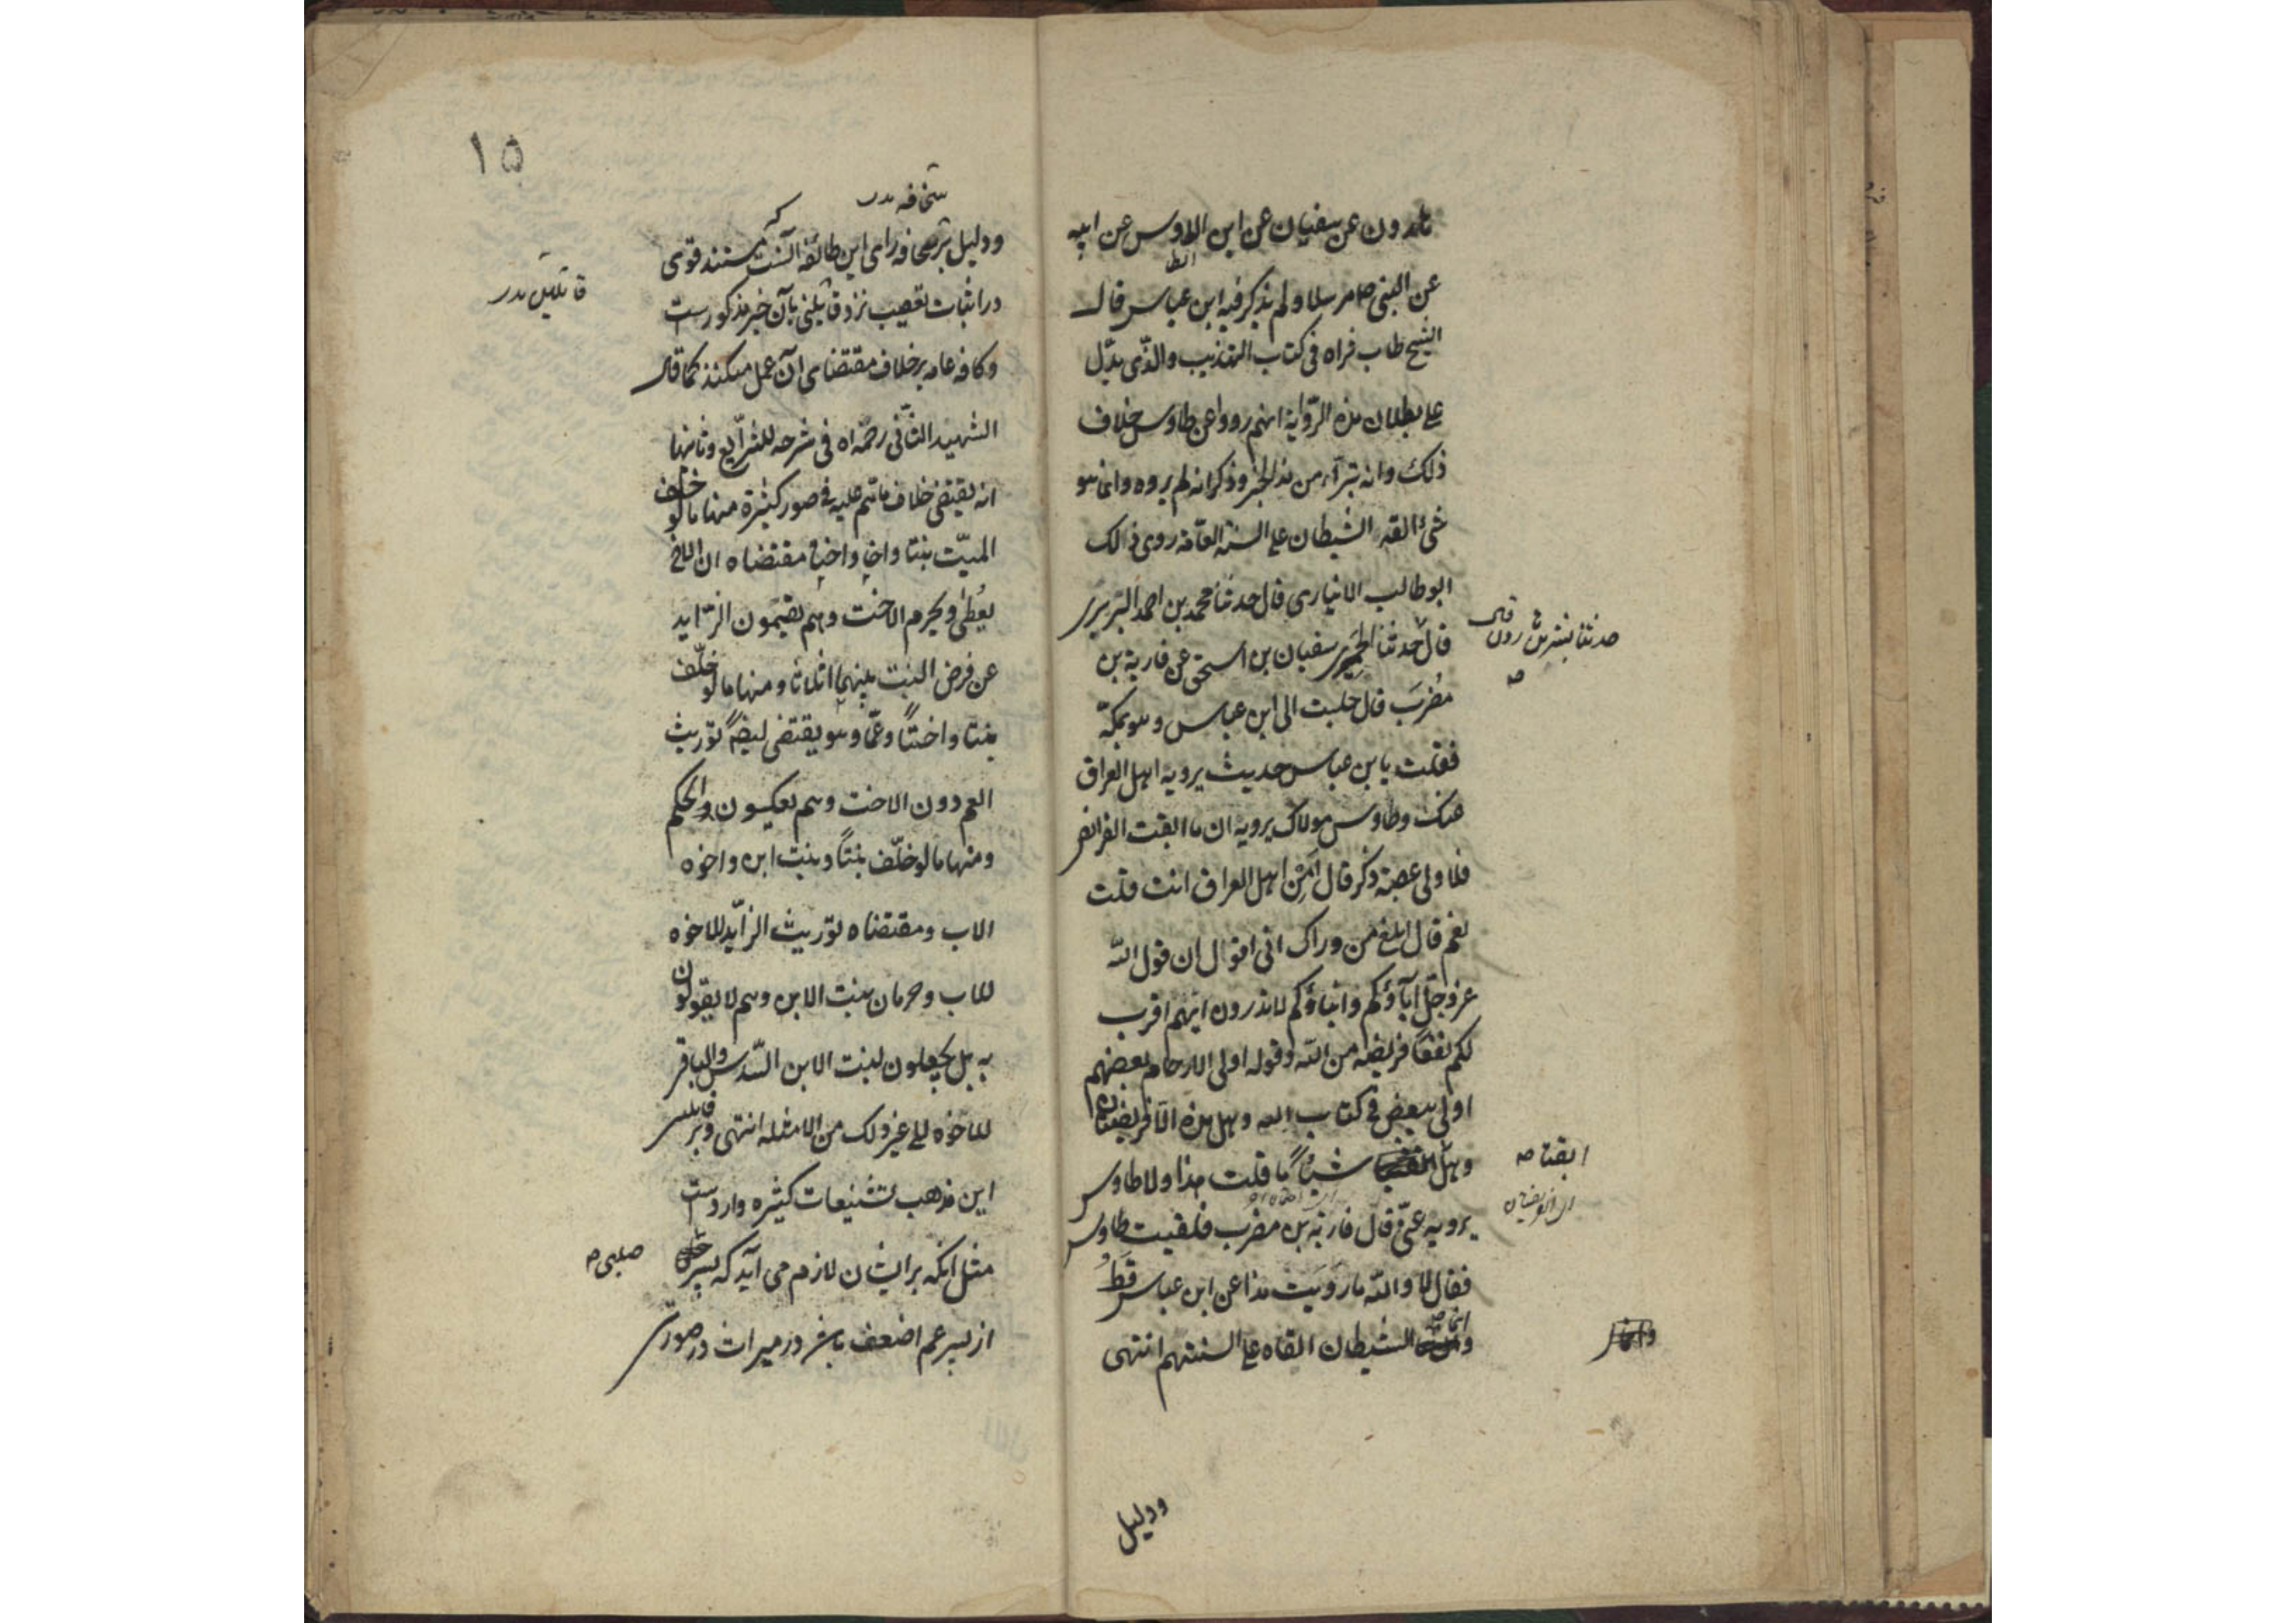 هارون عن سفيان عن ابن الطاوس عن ابيه
عن النبى ص مرسلا و لم يذكر فيه ابن عباس قال
الشيخ طاب ثراه فى كتاب التهذيب والذى يدل
على بطلان هذه الرّواية انهم رووا عن طاوس خلاف
ذلك وانه تبرّأ من هذا الخبر وذكر انه لم يروه وانما هو
شئ القه الشيطان على السنة العامّة روى ذلك
ابو طالب الانبارى قال حدثنا محمد بن احمد البربرى
قال حدثنا الحميرى سفيان بن اسحق عن قاربة بن
حدثنا بشر بن هرون قال
ص
مُضرَب قال جلست الى ابن عباس و هو بمكّة
فقلت يا بن عباس حديث يرويه اهل العراق
عنك وطاوس مولاك يرويه ان ما ابقت الفرائض
فلاولى عصبة ذكر قال اَمِن اهل العراق انت قلت
نعم قال ابلغ من وراك انى اقول ان قول الله
عزوجل اباؤكم وابناؤكم لا تدرون ايّهم اقرب
لكم نفعًا فريضة من الله وقوله اولى الارحام بعضهم
اولى ببعض فى كتاب الله وهل هذه الا فريضتان
وهل شيئًا ما قلت هذا ولا طاوس
ابقتا ص
يرويه عنّى قال قاربة بن مضرب فلقيت طاوس
فقال لا والله ما رويت هذا عن ابن عباس قطُ
و انما الشيطان القاه على السنتهم انتهى
ودليل
١٥
سخافه بدر
ودليل بر سخافه راى اين طائفه آنست كه مستند قوى
در اثبات تعصيب نزد قائلين بآن خبر مذكورست
قائلين بدر
و كافه عامه بر خلاف مقتضاى آن عمل ميكنند كما قال
الشهيد الثانى رحمه اه فى شرحه للشرايع وثانيها
انه يقتضى خلاف ما هم عليه فى صور كثيرة منها ما لو خلف
الميّت بنتا واخا واختا فمقتضاه ان الاخ
يعُطى ويحرم الاخت وهم يقسمون الزّايد
عن فرض البنت بينهما اثلاثا ومنها ما لو خلّف
بنتا واختًا وعمًّا وهو يقتضى ايضًا توريث
العم دون الاخت وهم يعكسون والحكم
ومنها ما لو خلّف بنتًا وبنت ابن واخوه
الاب ومقتضاه توريث الزّايد للاخوه
للاب وحرمان بنت الابن وهم لا يقولون
به بل يجعلون لبنت الابن السّدس والباقى
للاخوه الى غير ذلك من الامثله انتهى و بر قايلين
اين مذهب تشنيعات كثيره واردست
مثل انكه بر ايشان لازم مى آيد كه پسر
صلبى ص
از پسر عم اضعف باشد در ميراث در صورتى